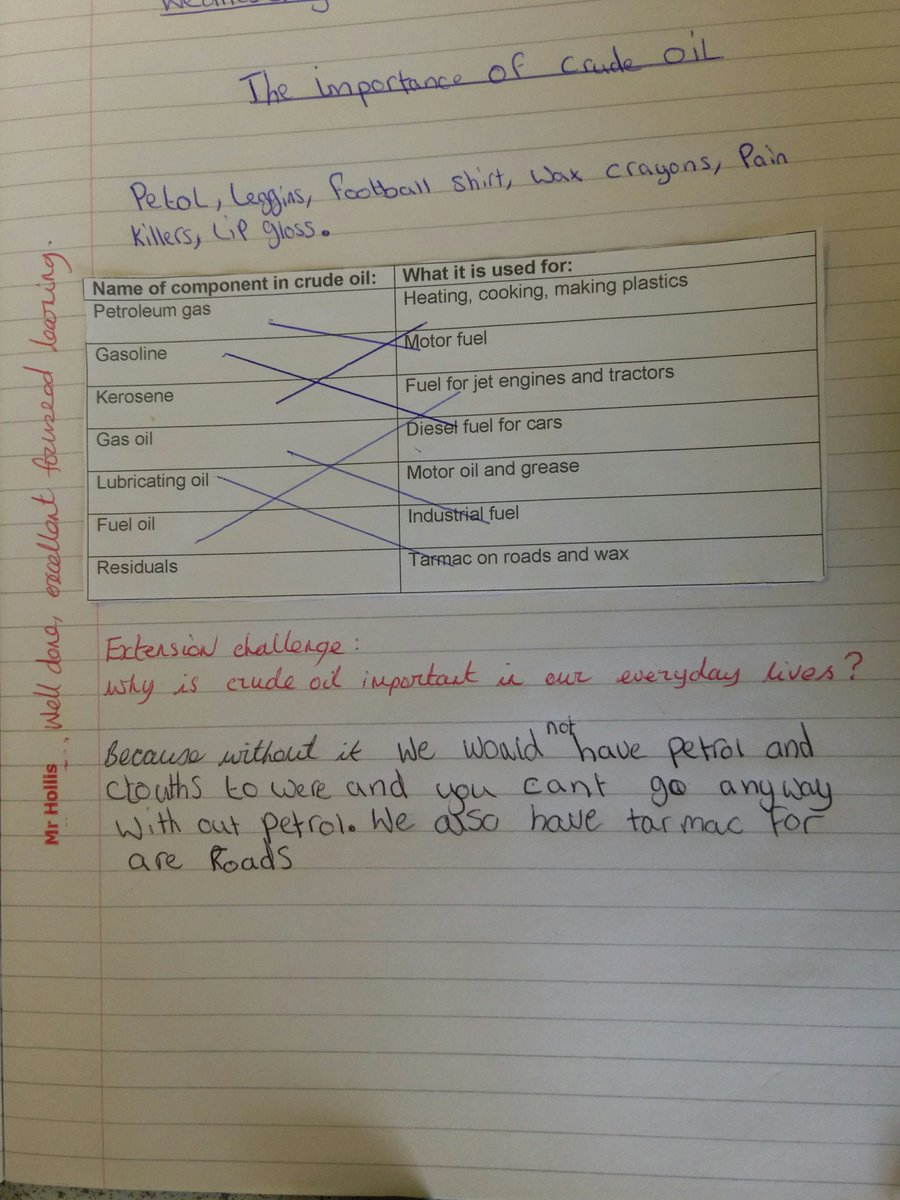 The importance of crude oil
Petol, Leggins, football shirt, wax crayons, Pain
killers, Lip gloss.
Name of component in crude oil: What it is used for:
Petroleum gas Heating, cooking, making plastics
Gasoline Motor fuel
Kerosene Fuel for jet engines and tractors
Gas oil Diesel fuel for cars
Lubricating oil Motor oil and grease
Fuel oil Industrial fuel
Residuals Tarmac on roads and wax
Mr Hollis Well done, excellant focused learing.
Extension challenge:
why is crude oil important in our everyday lives?
Because without it we would not have petrol and
clouths to were and you cant go anyway
with out petrol. We also have tarmac for
are Roads